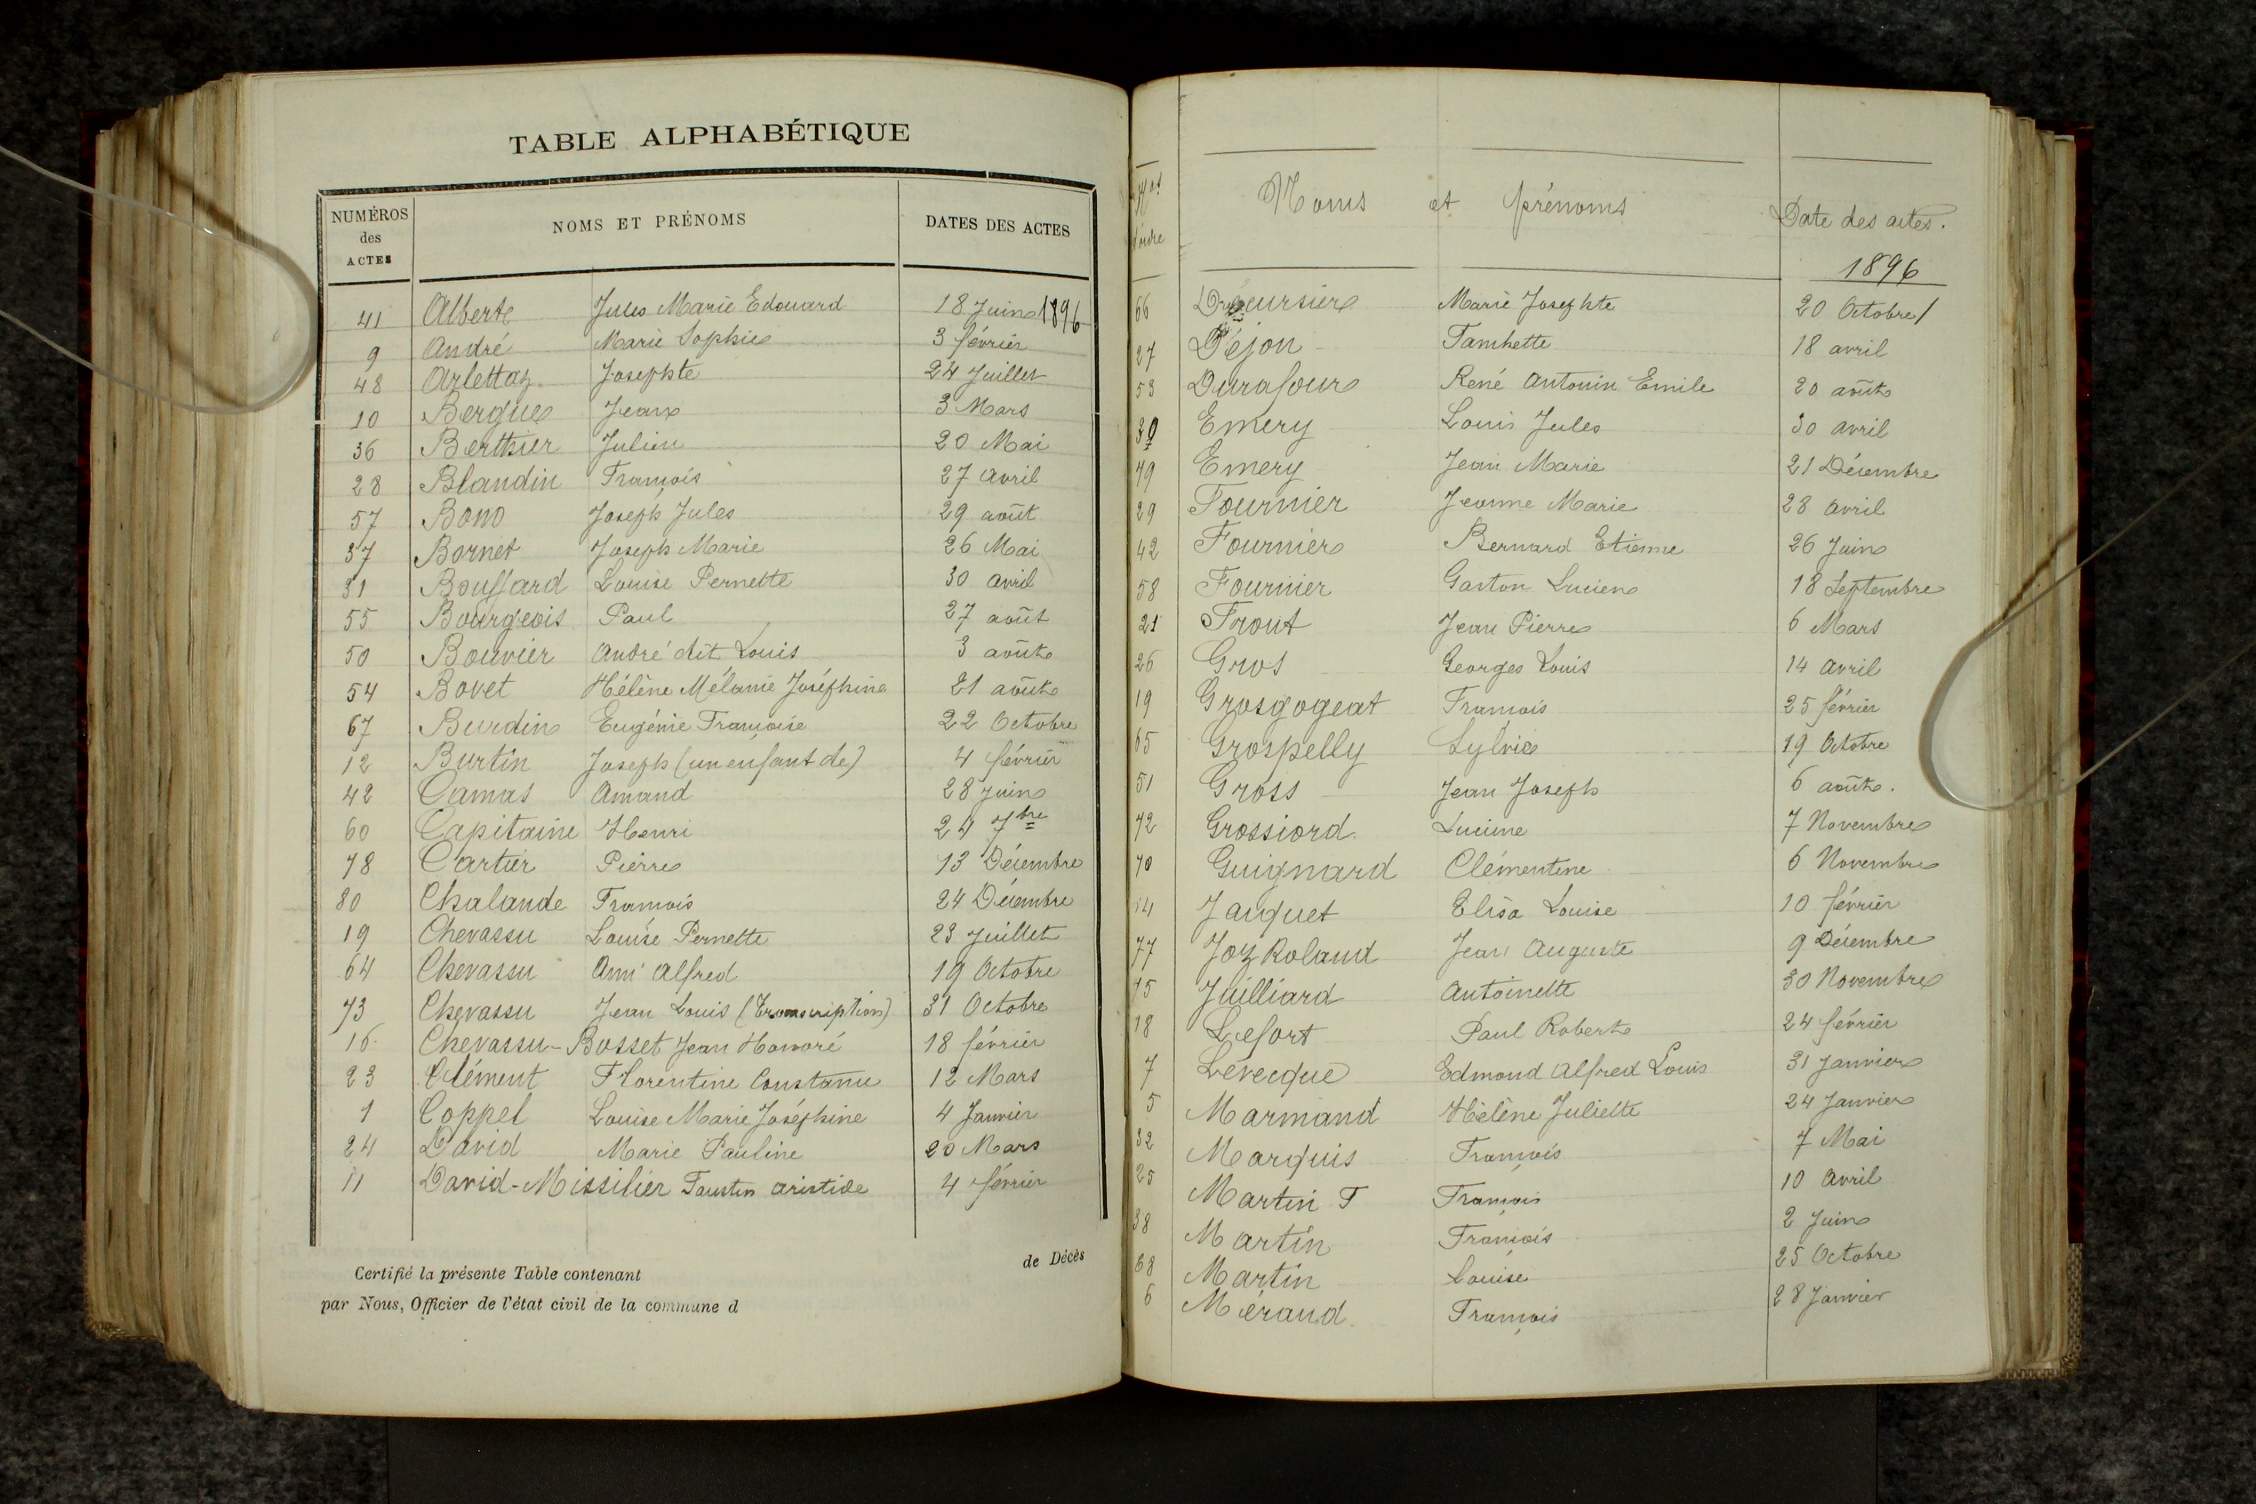 TABLE ALPHABÉTIQUE
NUMÉROS des ACTES NOMS ET PRÉNOMS DATES DES ACTES
41 Alberte Jules Marie Edouard 18 Juin 1896
9 André Marie Sophie 3 février
48 Arlettaz Josephte 24 Juillet
10 Bergue Jean 3 Mars
36 Berthier Julien 20 Mai
28 Blandin François 27 avril
57 Bono Joseph Jules 29 août
37 Bornet Joseph Marie 26 Mai
31 Bouffard Louise Pernette 30 avril
55 Bourgeois Paul 27 août
50 Bouvier André dit Louis 3 août
54 Bovet Hélène Mélanie Joséphine 21 août
67 Burdin Eugénie Françoise 22 Octobre
12 Burtin Joseph (un enfant de) 4 février
42 Camas Amand 28 Juin
60 Capitaine Henri 24 7bre
78 Cartier Pierre 13 Décembre
80 Chalande François 24 Décembre
19 Chevassu Louise Pernette 23 Juillet
64 Chevassu Ami Alfred 19 Octobre
73 Chevassu Jean Louis (Transcription) 31 Octobre
16 Chevassu-Bosset Jean Honoré 18 février
23 Clément Florentine Constance 12 Mars
1 Coppel Louise Marie Joséphine 4 Janvier
24 David Marie Pauline 20 Mars
11 David-Missilier Faustin Aristide 4 février
de Décès
Certifié la présente Table contenant
par Nous, Officier de l'état civil de la commune d
Nos d'ordre Noms et prénoms Date des actes.
1896
66 Marie Josephte 20 Octobre
27 Déjon Fanchette 18 avril
53 Durafour René Antonin Emile 20 août
30 Emery Louis Jules 30 avril
79 Emery Jean Marie 21 Décembre
29 Fournier Jeanne Marie 28 avril
42 Fournier Bernard Etienne 26 Juin
58 Fournier Gaston Lucien 18 Septembre
21 Front Jean Pierre 6 Mars
26 Gros Georges Louis 14 avril
19 Grosgogeat François 25 février
65 Grospelly Sylvie 19 Octobre
51 Gross Jean Joseph 6 août.
72 Grossiord Lucienne 7 Novembre
70 Guignard Clémentine 6 Novembre
14 Jacquet Elisa Louise 10 février
77 Joz Roland Jean Auguste 9 Décembre
75 Juilliard Antoinette 30 Novembre
18 Lefort Paul Robert 24 février
7 Levecque Edmond Alfred Louis 31 Janvier
5 Marmand Hélène Juliette 24 Janvier
32 Marquis François 7 Mai
25 Martin F François 10 avril
38 Martin François 2 Juin
68 Martin Louise 25 Octobre
6 Méraud François 28 Janvier